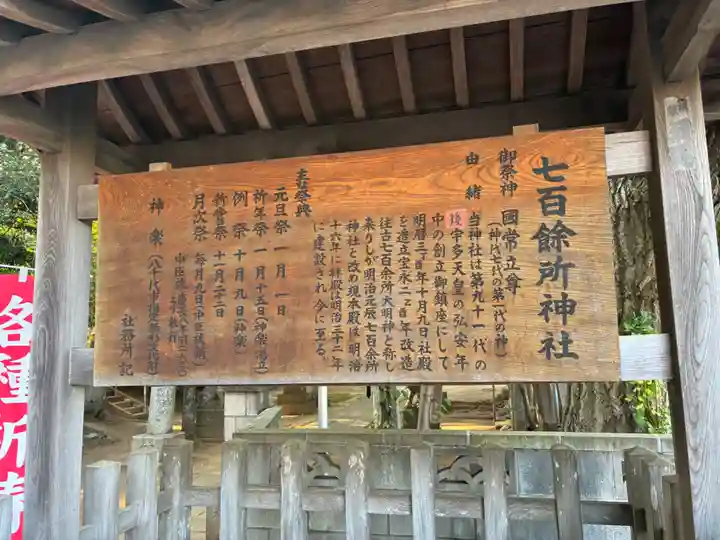 七百餘所神社
御祭神 國常立尊
(神代七代の第一代の神)
由緒 当神社は第九十一代の
後宇多天皇の弘安年
中の創立御鎮座にして
明暦三年十月九日社殿
を造立宝永二年改造
往古七百余所大明神と称し
来りしが明治元辰七百余所
神社と改め現本殿は明治
十六年に拝殿は明治三十二年
に建設され今に至る。
主な祭典
元旦祭 一月一日
祈年祭 一月十五日(神楽・湯立)
例祭 十月九日(神楽)
新嘗祭 十一月二十三日
月次祭 毎月九日
神楽
社務所記
各種祈